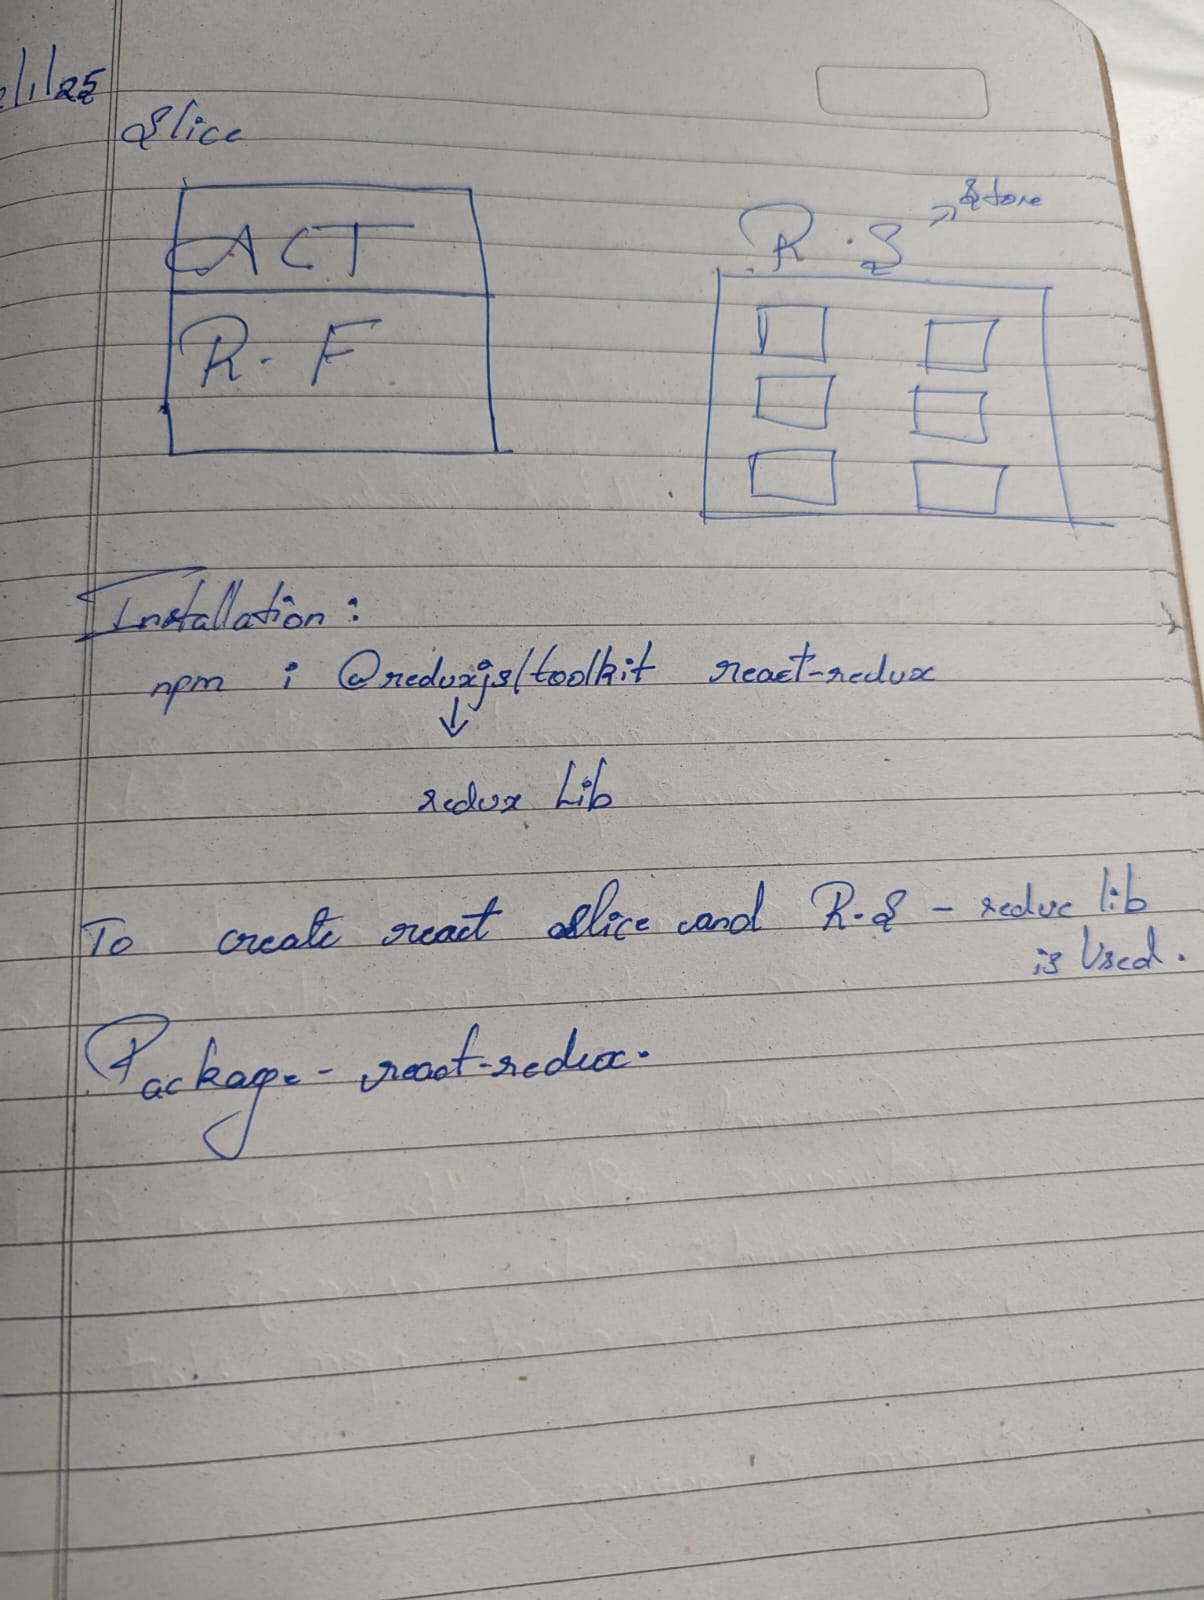 /1/25
Slice
ACT
R.F
R.S → Store
Installation:
npm i @reduxjs/toolkit react-redux
↓
redux Lib
To create react slice and R.S - redux lib
is Used.
Package - react-redux.